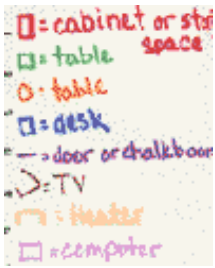 = cabinet or
space
= table
= table
= desk
= door or chalkboar
= TV
= Heater
= computer